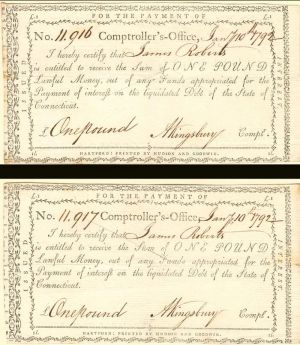 FOR THE PAYMENT OF
No. 11.916 Comptroller's-Office, Jany 10th 1792
I hereby certify that James Roberts
is entitled to receive the Sum of ONE POUND
Lawful Money, out of any Funds appropriated for the
Payment of interest on the liquidated Debt of the State of
Connecticut.
£ One pound AKingsbury Compt.
HARTFORD: PRINTED BY HUDSON AND GOODWIN.
ISSUED
FOR THE PAYMENT OF
No. 11.917 Comptroller's-Office, Jany 10th 1792
I hereby certify that James Roberts
is entitled to receive the Sum of ONE POUND
Lawful Money, out of any Funds appropriated for the
Payment of interest on the liquidated Debt of the State of
Connecticut.
£ One pound AKingsbury Compt.
HARTFORD: PRINTED BY HUDSON AND GOODWIN.
ISSUED